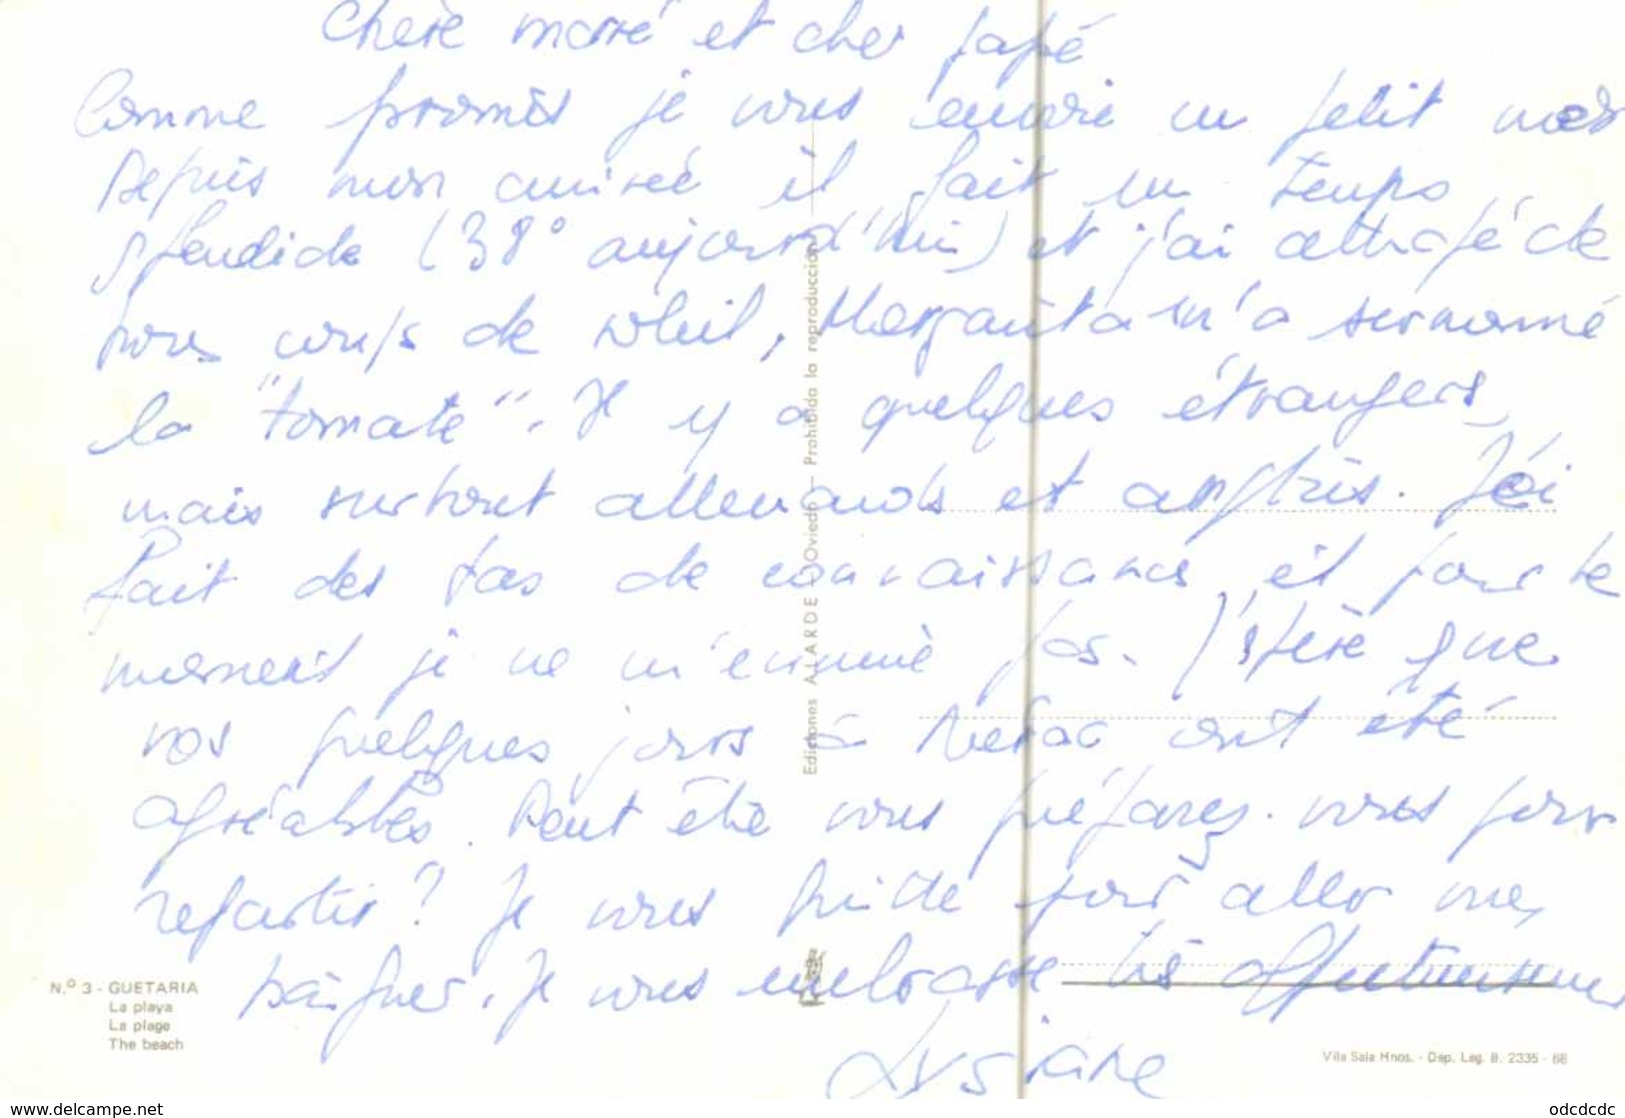 Chère mamé et cher papé
Comme promis je vous envoie un petit mot
Depuis mon arrivée il fait un temps
splendide (38° aujourd'hui) et j'ai attrapé de
bons coups de soleil, Margarita m'a surnommé
la "tomate". Il y a quelques étrangers,
mais surtout allemands et anglais. J'ai
fait des tas de connaissances et pour le
moment je ne m'ennuie pas. J'espère que
vos quelques jours à Nérac ont été
agréables. Peut être vous préparez vous pour
repartir ? Je vous quitte pour aller me
baigner. Je vous embrasse très affectueusement
Lysiane
N.º 3 - GUETARIA
La playa
La plage
The beach
Ediciones ALARDE - Oviedo - Prohibida la reproducción
Vila Sala Hnos. - Dep. Leg. B. 2335 - 68
www.delcampe.net
odcdcdc